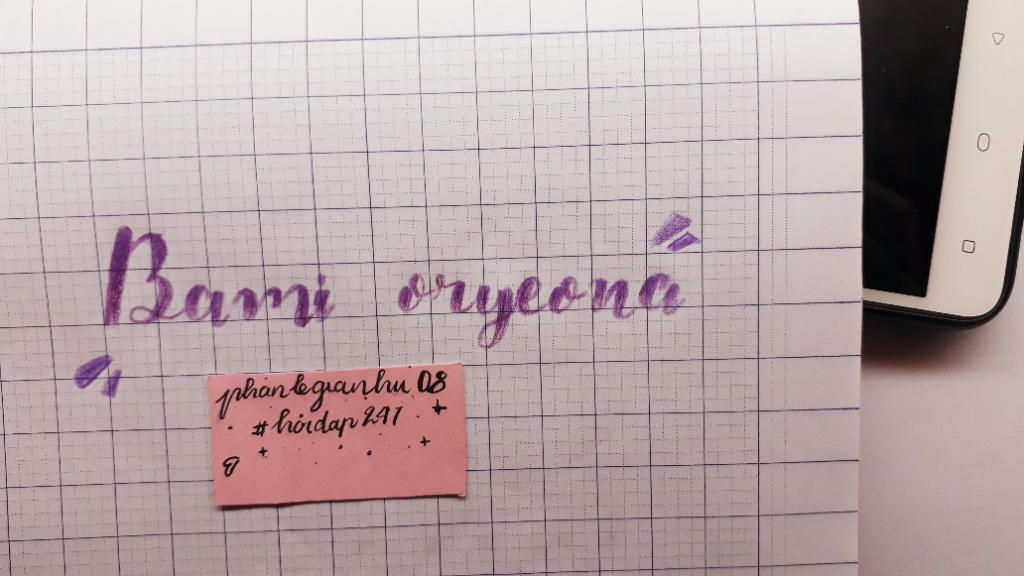 Bami oryeona
phanlegianhu 08
#hỏidap247